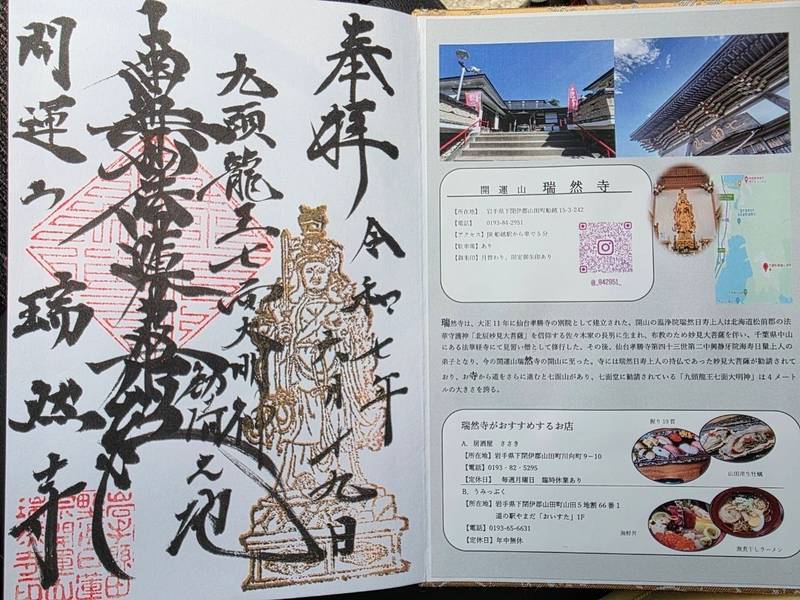 奉拝
令和七年
六月十九日
九頭龍王七面大明神
勧請之地
南無妙法蓮華経
開運山
瑞然寺
開運山 瑞然寺
【所在地】 岩手県下閉伊郡山田町船越15-3-242
【電話】 0193-84-2951
【アクセス】JR船越駅から車で5分
【駐車場】あり
【御朱印】月替わり、限定御朱印あり
@_842951_
瑞然寺は、大正11年に仙台孝勝寺の別院として建立された。開山の温浄院瑞然日寿上人は北海道松前郡の法
華守護神「北辰妙見大菩薩」を信仰する佐々木家の長男に生まれ、布教のため妙見大菩薩を伴い、千葉県中山
にある法華経寺にて見習い僧として修行した。その後、仙台孝勝寺第四十三世第二中興静牙院海寿日量上人の
弟子となり、今の開運山瑞然寺の開山に至った。寺には瑞然日寿上人の持仏であった妙見大菩薩が勧請されて
おり、お寺から道をさらに進むと七面山があり、七面堂に勧請されている「九頭龍王七面大明神」は4メート
ルの大きさを誇る。
瑞然寺がおすすめするお店
A. 居酒屋 ささき
【所在地】岩手県下閉伊郡山田町川向町9−10
【電話】0193‐82‐5295
【定休日】 毎週月曜日 臨時休業あり
B. うみっぷく
【所在地】岩手県下閉伊郡山田町山田5地割66番1
道の駅やまだ「おいすた」1F
【電話】0193-65-6631
【定休日】年中無休
握り10貫
山田湾生牡蠣
海鮮丼
磯煮干しラーメン